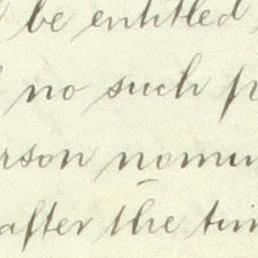 be entitled
no such p
rson nomin
after the tim